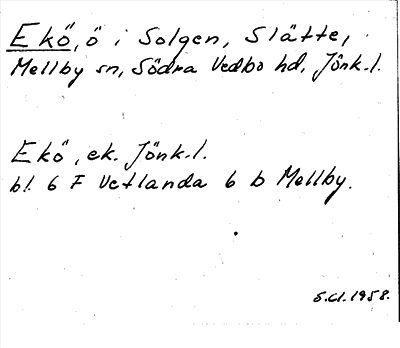 Ekö, ö i Solgen, Slätte,
Mellby sn, Södra Vedbo hd, Jönk. l.
Ekö, ek. Jönk. l.
bl. 6 F Vetlanda 6 b Mellby.
S.Cl. 1958.